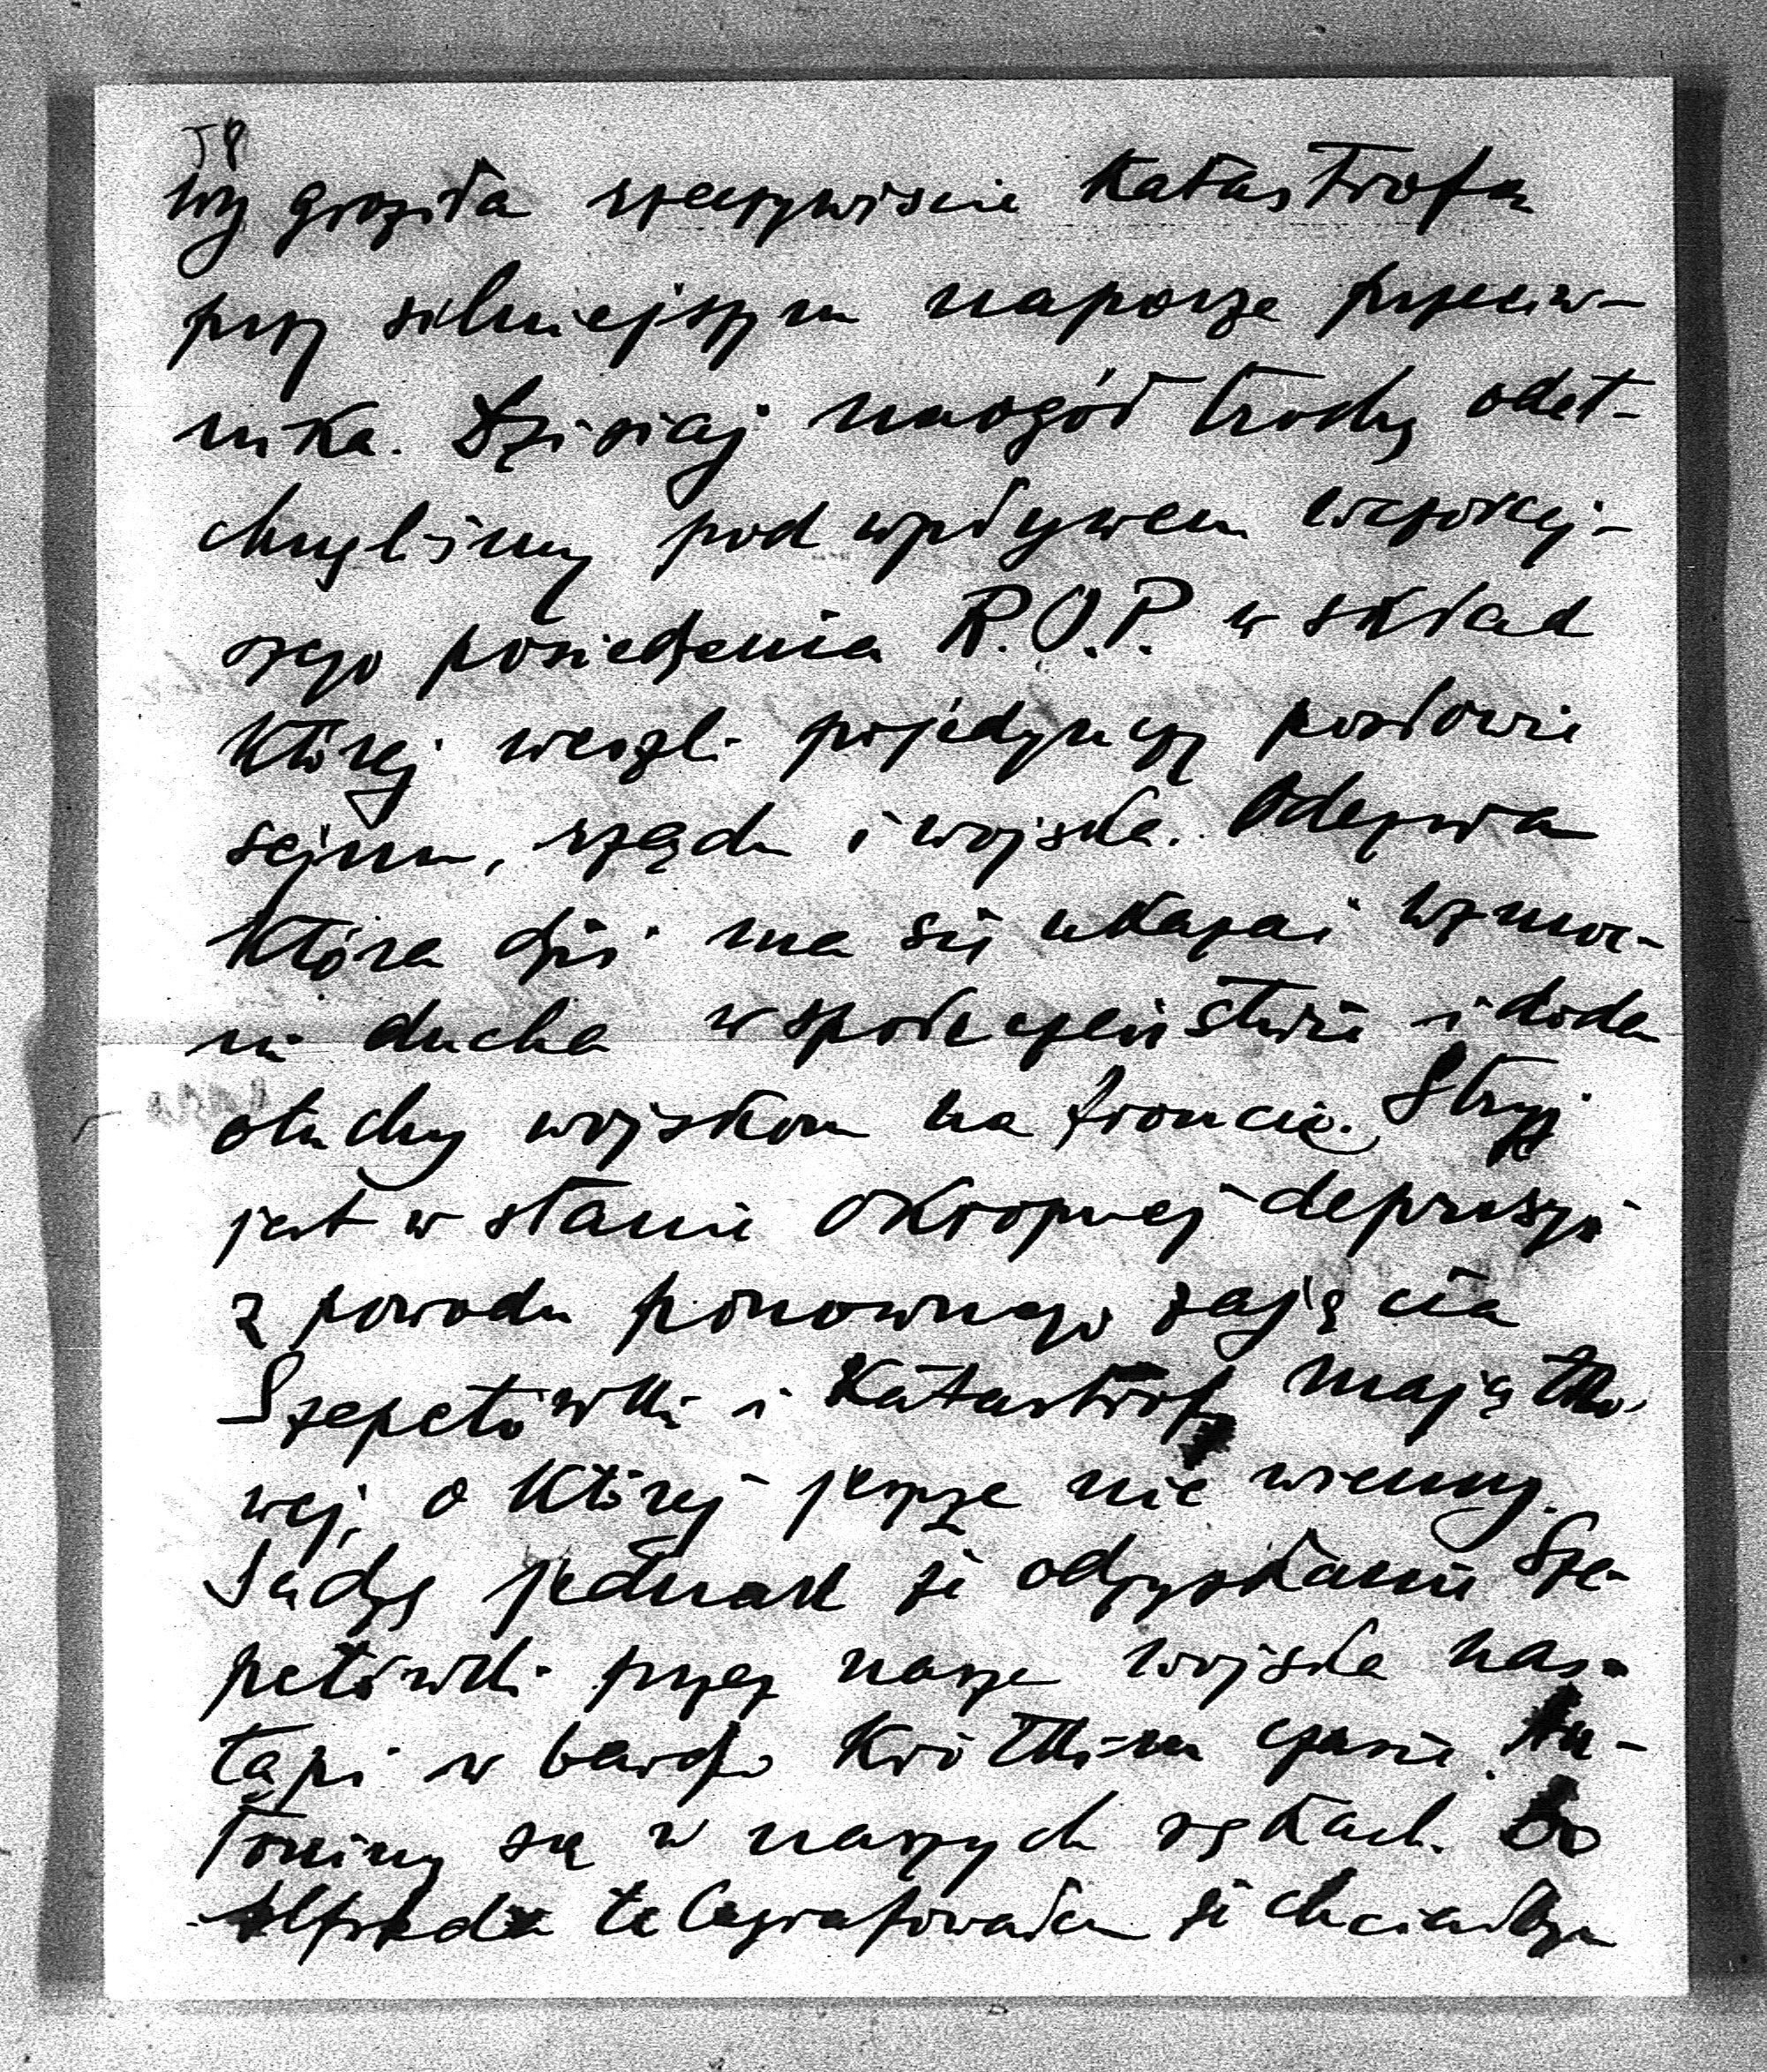 JP
wy groziła rzeczywiscie katastrofa
przy silniejszym naporze przeciw-
nika. Dzisiaj naogół trochę odet-
chnęliśmy pod wpływem wczoraj-
szego posiedzenia R.O.P. w skład
której weszli pojedynczy posłowie
sejmu, rządu i wojska. Odezwa
która dziś ma się ukazać wzmoc-
ni ducha w społeczeństwie i doda
otuchy wojskom na froncie. Stryj
jest w stanie okropnej depresyi
z powodu ponownego zajęcia
Szepetówki i katastrofy majątko-
wej, o której jeszcze nie wiemy.
Sądzę jednak że odzyskanie Sze-
petówki przez nasze wojska nas-
tąpi w bardzo krótkim czasie. An-
toniny są w naszych rękach. Do
Alfreda telegrafowałem że chciałbym